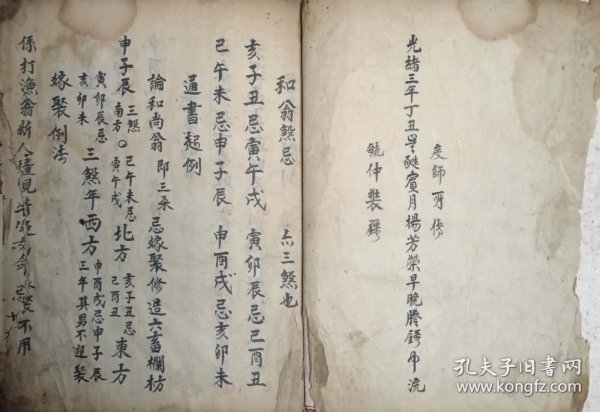 光緒三年丁丑 賓月楊芳榮早晚謄 
度師 傳
毓仲裝
和翁煞忌 三煞也
亥子丑忌寅午戌 寅卯辰忌巳酉丑
巳午未忌申子辰 申酉戌忌亥卯未
通書起例
論和尚翁 即三杀 忌嫁娶修造六畜欄枋
申子辰 三煞南方 巳午未忌寅午戌 北方 亥子丑忌巳酉丑 東方
寅卯辰忌亥卯未 三煞年西方 申酉戌忌申子辰 三年其男不 娶
嫁娶例法
係打漁翁新人撞見 不用
孔夫子旧书网
www.kongfz.com